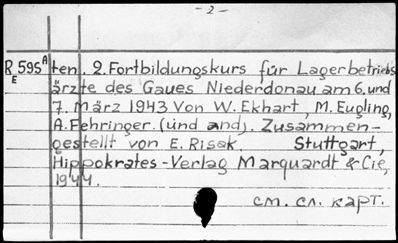 - 2 -
R 595 A ten. 2. Fortbildungskurs für Lagerbetriebs
E ärzte des Gaues Niederdonau am 6. und
7. März 1943 von W. Ekhart, M. Eugling,
A. Fehringer. (und and). Zusammen-
gestellt von E. Risak. Stuttgart,
Hippokrates-Verlag Marquardt & Cie,
1944.
см. сл. карт.